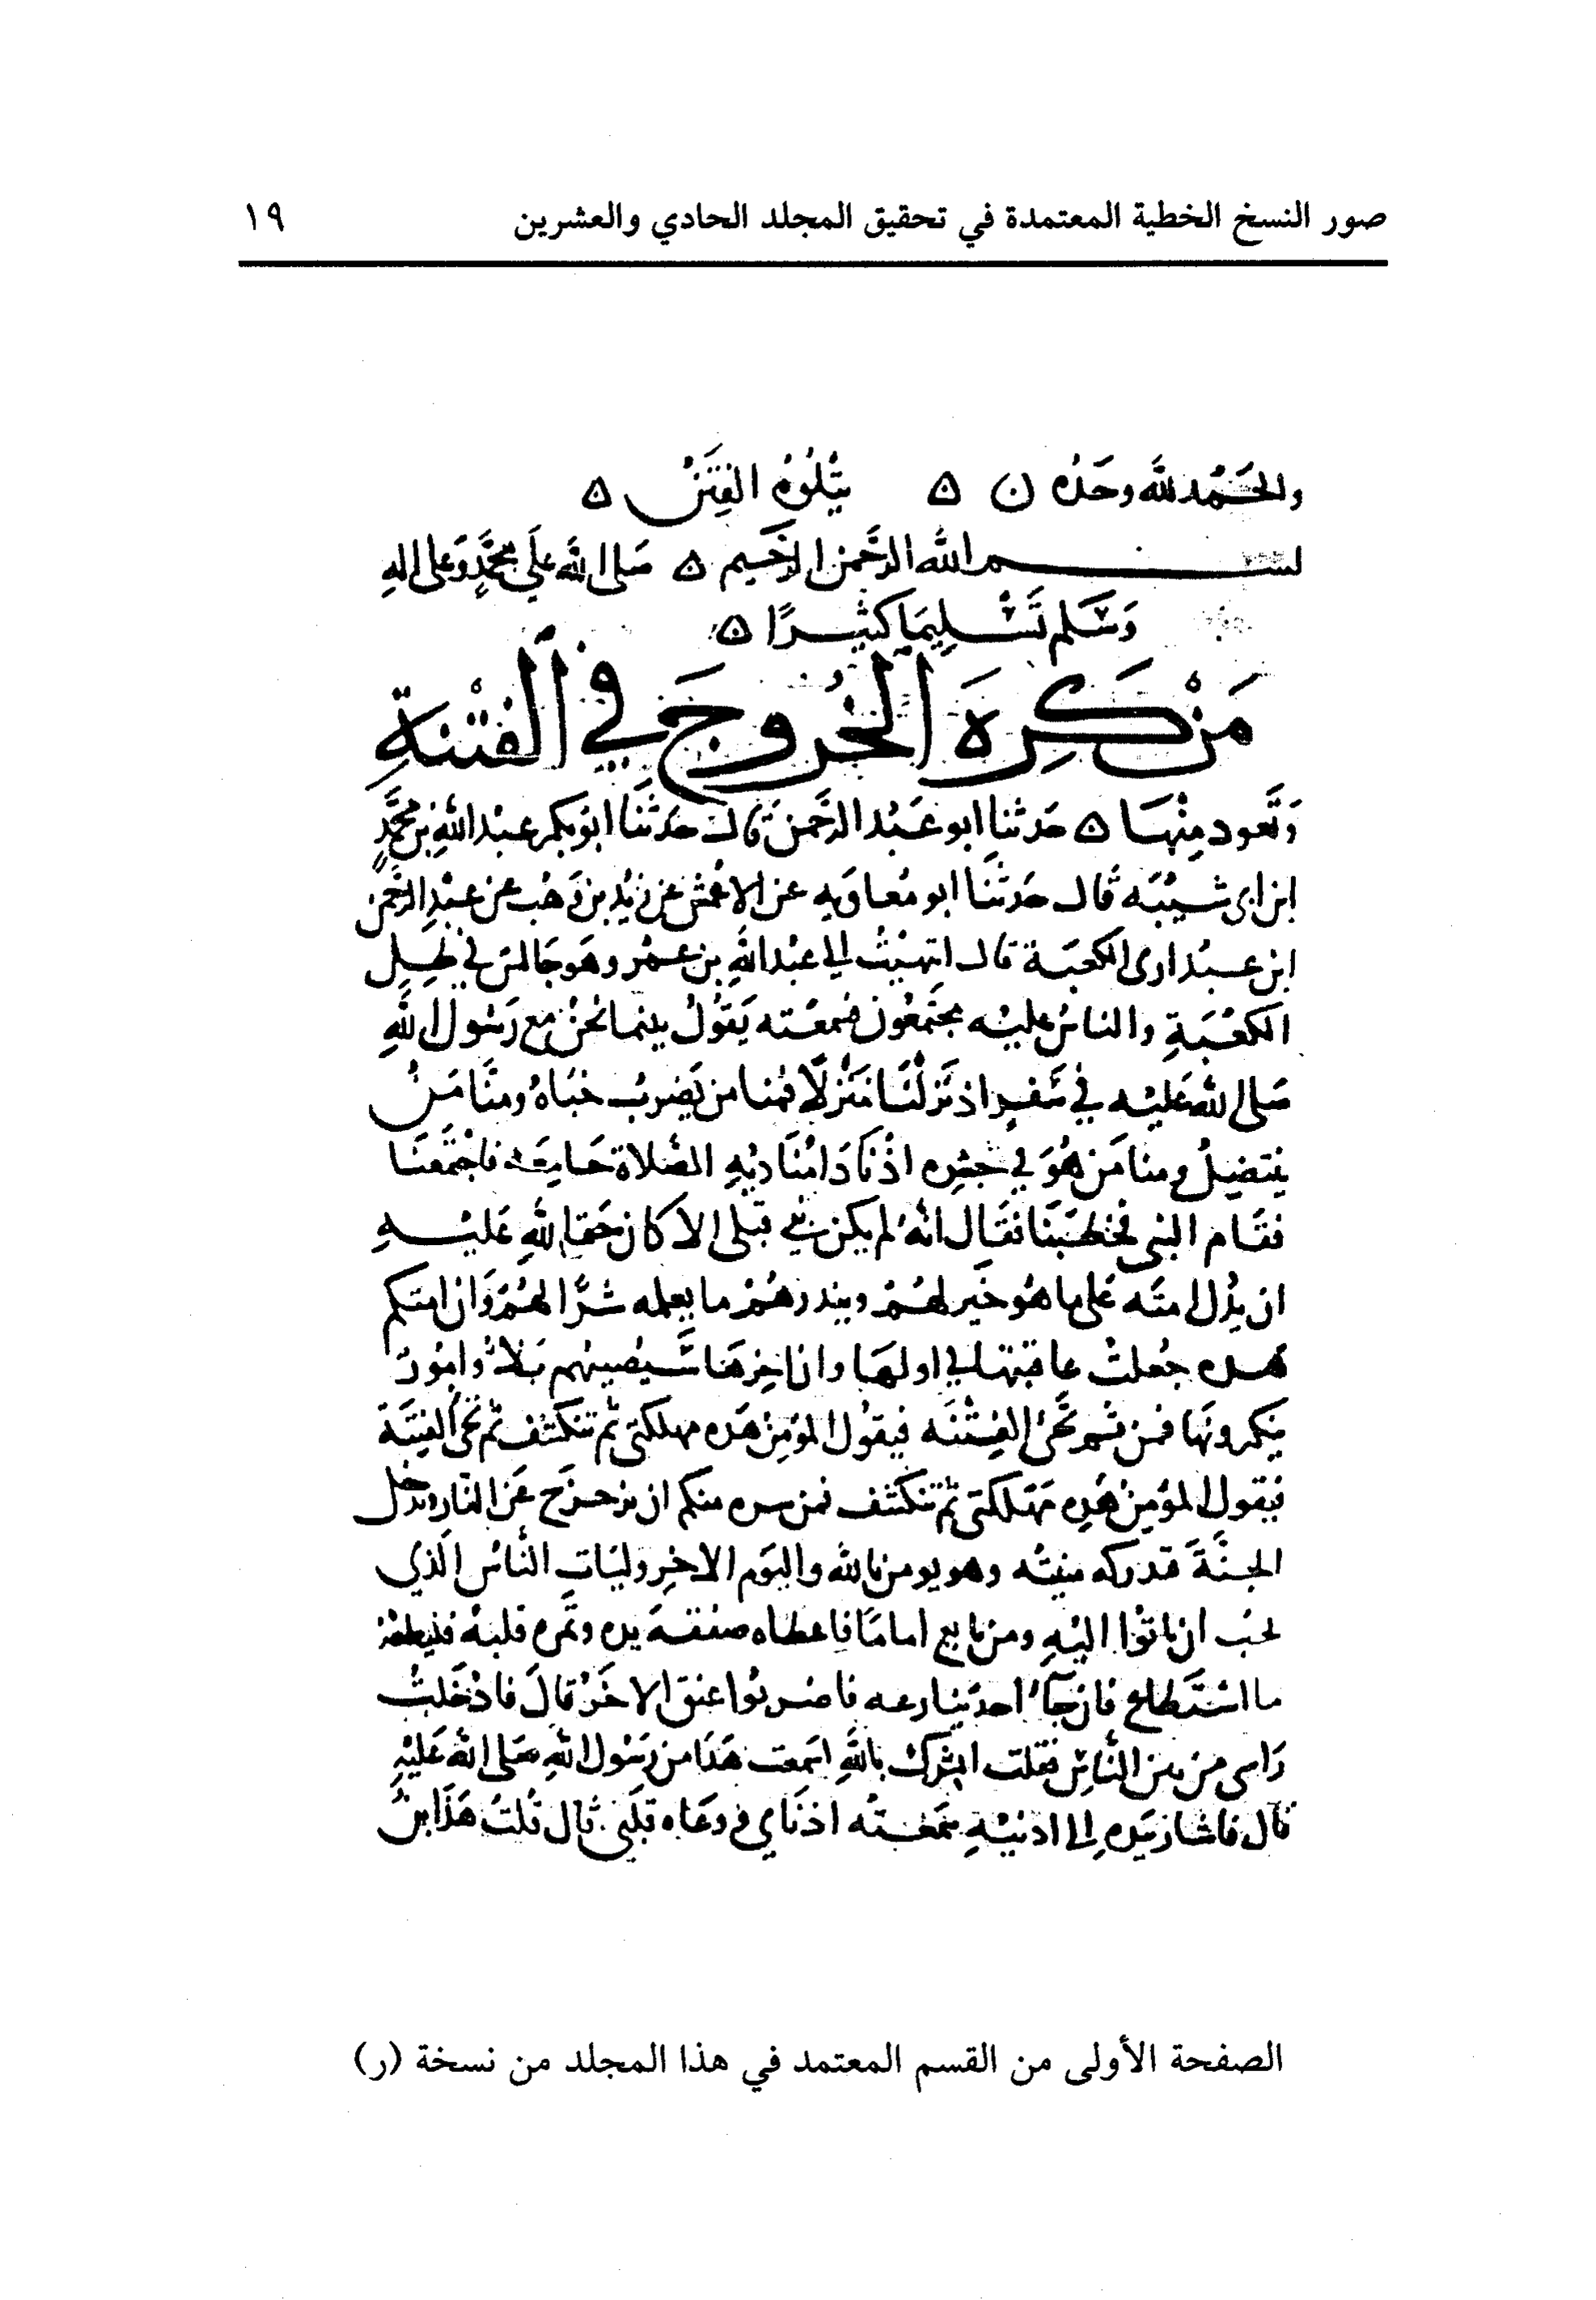 صور النسخ الخطية المعتمدة في تحقيق المجلد الحادي والعشرين ١٩
والحَمْد لله وحده ن ۵ يتْلُوهُ الفِتَنْ ۵
بسم الله الرحمن الرحيم ۵ صَلى الله عَلَى مُحَمَّدٍ وَعَلى اله
وَسَلم تَسْلِيمًا كثيرًا ۵
مَنْ كَرِهَ الخُرُوجَ في الفتْنَةِ
وَتَعود مِنْهَا ۵ حَدثنا ابو عَبْد الرحمن قال حَدثَنَا ابُو بكر عبْد اللهِ بن محمَّدٍ
ابن ابى شيْبَه قال حَدثَنَا ابو مُعاويه عن الاعمش عن زيْد بن وَهْب عن عبْدِ الرحمن
ابن عبْدارى الكعبَة قال انتهيْتُ الى عبْد الله بن عمرُ وهو جَالسٌ في ظِل
الكعْبَةِ والناسُ عليْه مجتمعُون فسمعْته يَقُولُ بينما نحْنُ مع رَسُول اللهِ
صَلى الله عَليْه في سَفرٍ اذ نَزلْنَا مَنْزلًا فمنا من يَضربُ خبَاهُ ومنَّا مَنْ
ينتضِلُ ومنا مَن هُوَ في جشرِه اذْ نَادَا مُنَاديْهِ الصَّلاة جَامِعَة فاجْتَمعنَا
فقَام النبى فخطبَنَا فقَال انهُ لم يكن نبي قبْلى الا كان حَقا للهِ عَليْهِ
ان يدُل امتَه عَلى ما هُو خَير لهُمْ وينذرهُمْ ما يعلمه شرًّا لهُمْ وَان امتكم
هَذه جُعلتْ عاقبتها في اولهَا وان اخِرهَا سَيُصيبهم بَلاءٌ وامُورٌ
ينكرونَهَا فمن ثم تَجيُ الفِتْنَه فيقُول المؤمِنُ هَذه مهلكتى ثم تنكشف ثم تجي الفِتنَة
فيقول المؤمِنُ هَذِه مَهلكتى ثم تنكشف فمن سره منكم ان يزحزَح عَن النار وندخل
الجنَّةَ قدركه منيتُه وهو يومن بالله واليَوم الاخِر وليَاتِ النَّاسَ الَذي
يحبُ ان ياتوْا اليْهِ ومن بايع امامًا فاعطاه صفقهَ يده وثمره قلبهُ فليطعْهُ
ما اسْتَطاع فان جَآءُ احد ينازعه فاضربُوا عنق الاخَرُ قالَ فادْخَلتُ
رَاسى من بين الناسِ فقلت انشدك باللهِ اسمعت هَذَا من رَسُول اللهِ صَلى الله عَليْهِ
قال فاشار بيَدِه الى اذنيْهِ سَمعتُه اذنَاي ووعَاه قَلبى قال قلتُ هَذَا ابنُ
الصفحة الأولى من القسم المعتمد في هذا المجلد من نسخة (ر)